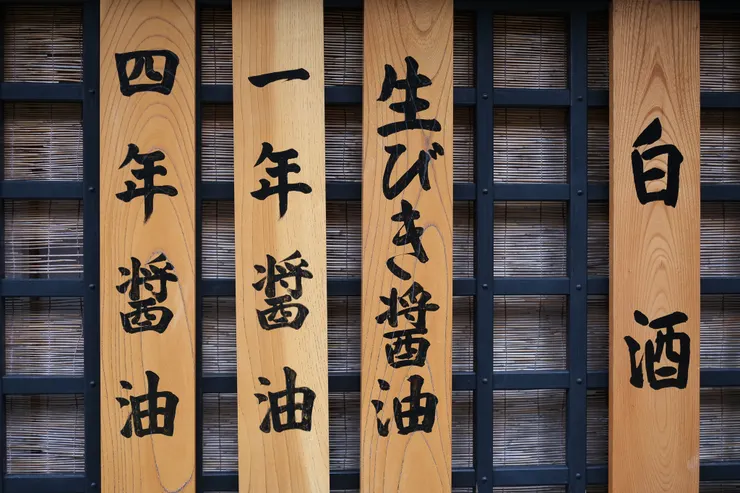 白酒
生びき醤油
一年醤油
四年醤油